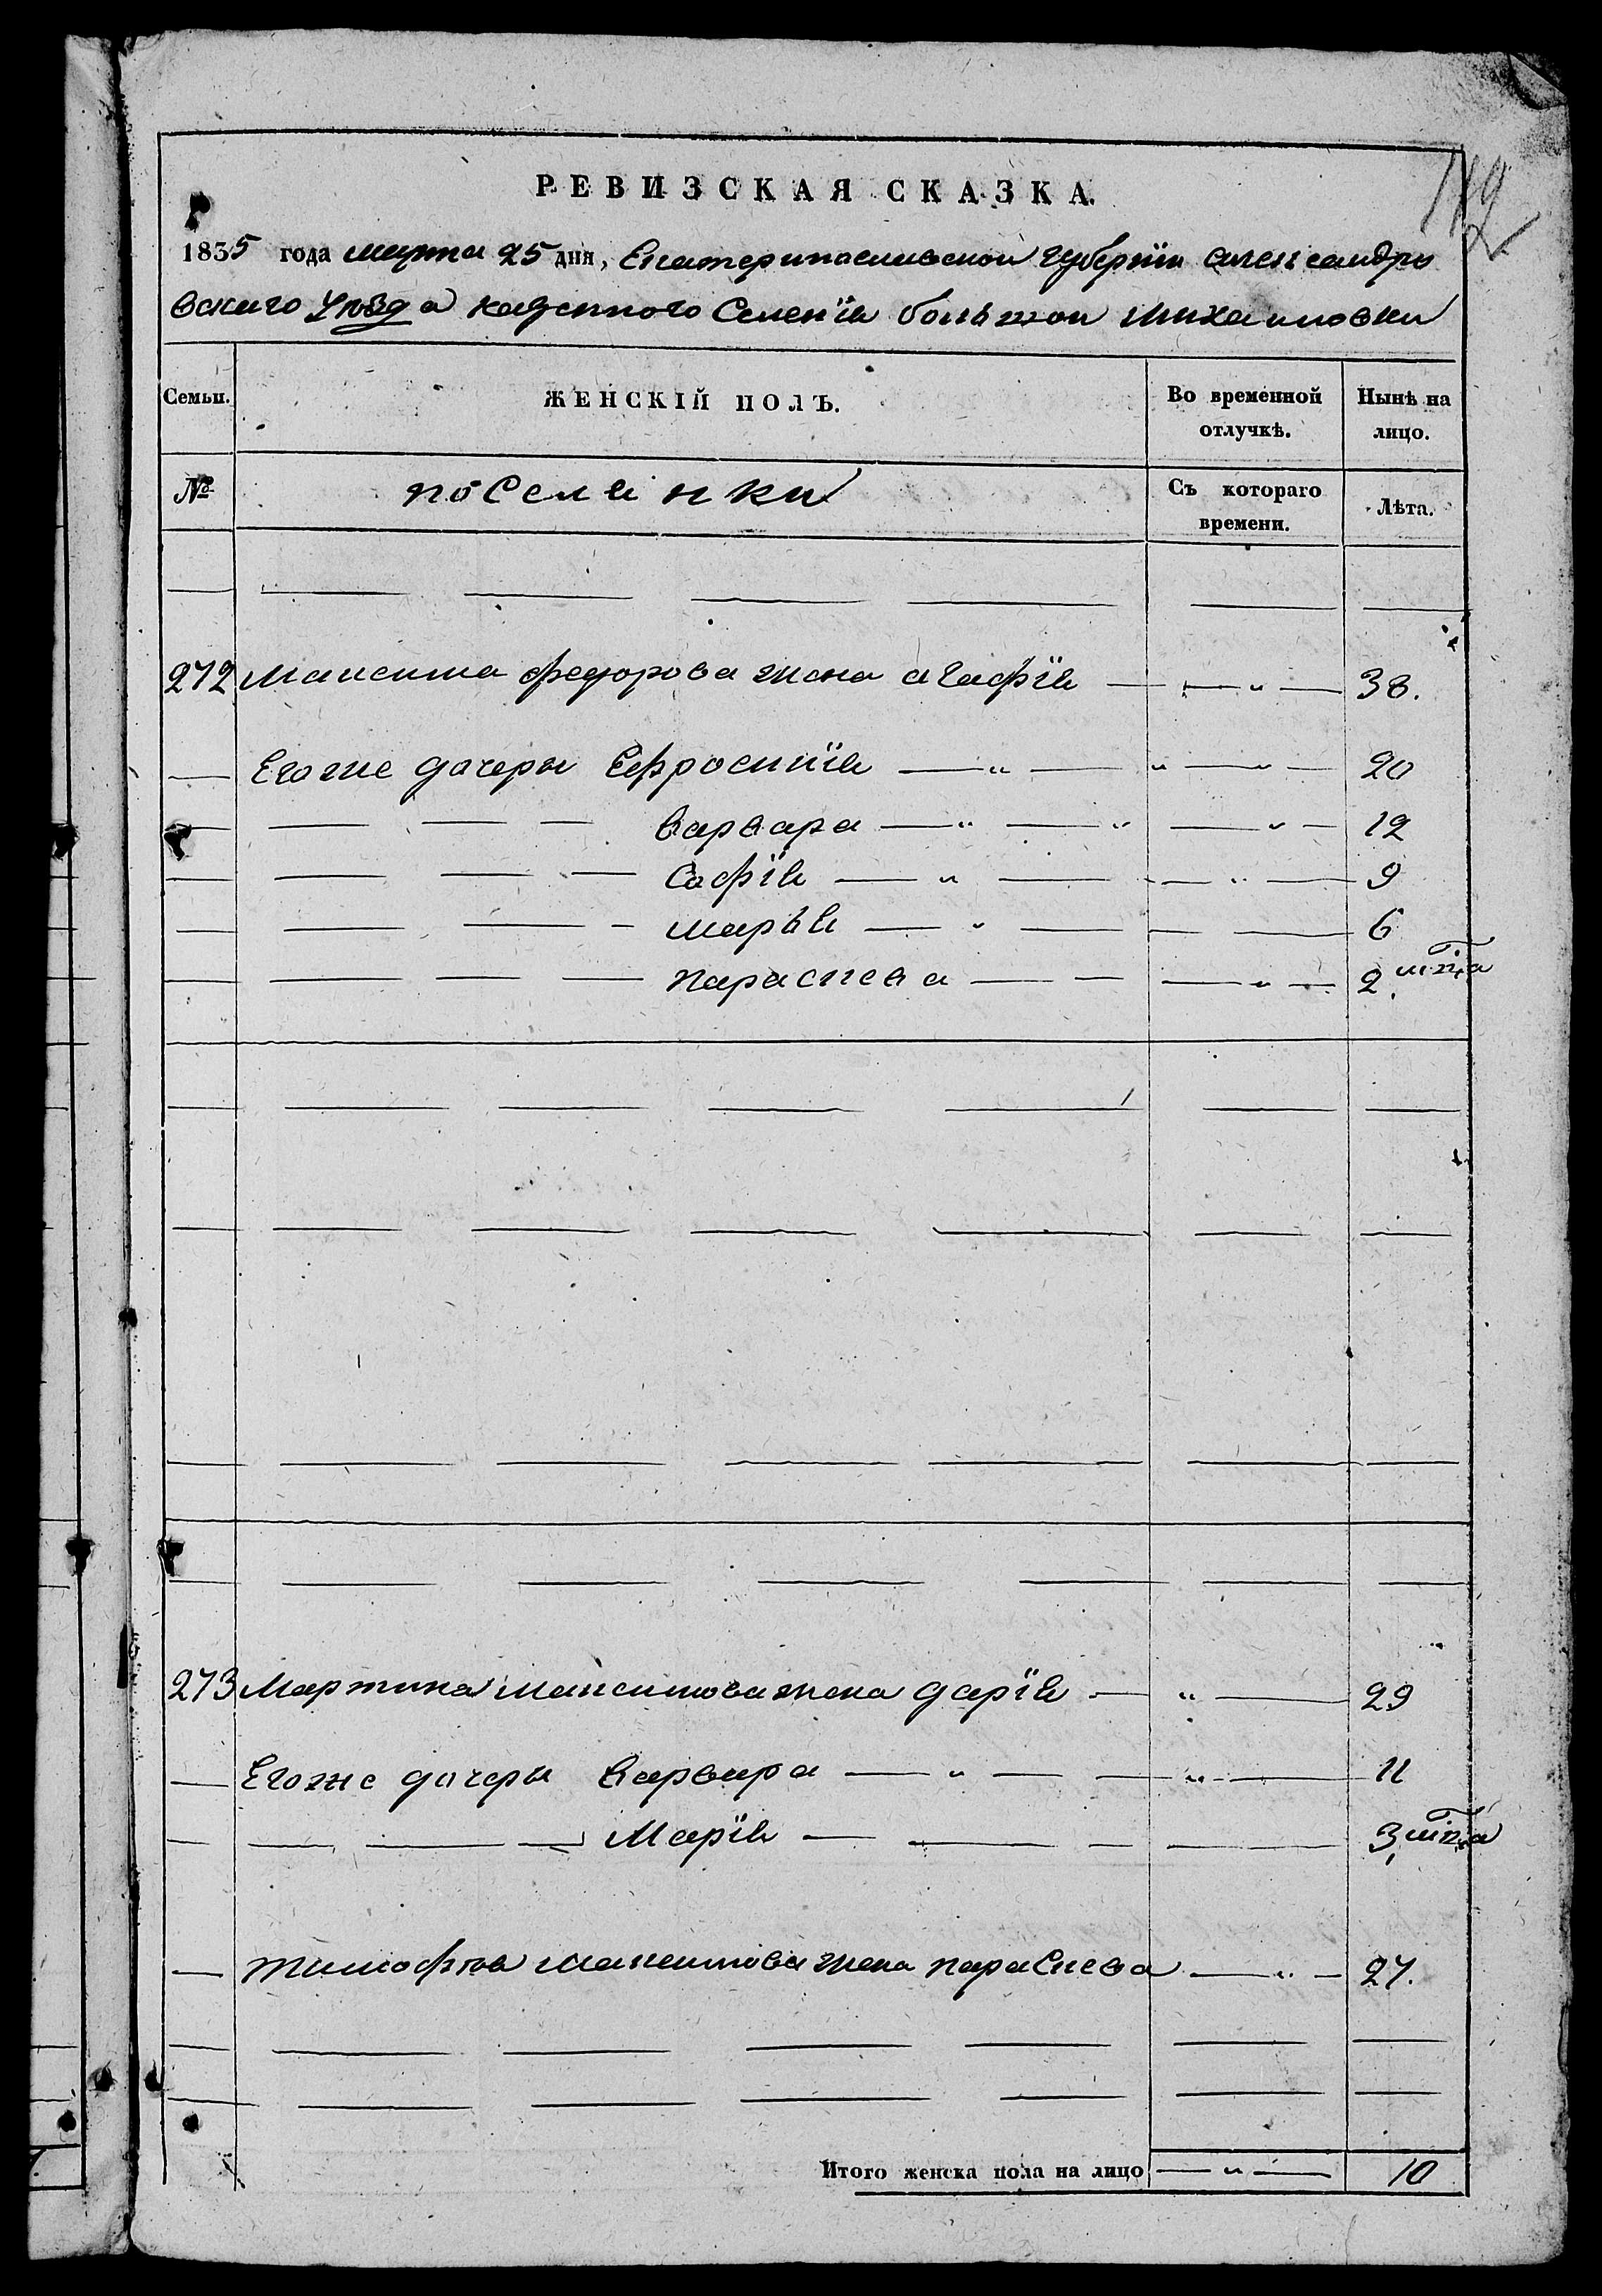 РЕВИЗСКАЯ СКАЗКА.
1835 года марта 25 дня, Екатеринославской губерніи александро
вского Уѣзда казенного Селенія большой михаиловки
Семьи. ЖЕНСКІЙ ПОЛЪ. Во временной отлучкѣ. Нынѣ на лицо.
№ поселянки Съ котораго времени. Лѣта.
272 Максима федорова жена агафія 38.
Егоже дочеры Ефросинія 20
варвара 12
Софія 9
марья 6
параскева 2
273 Мартина максимова жена дарія 29
Егоже дочеры варвара 11
Марія 3
тимофѣя максимова жена параскева 27.
Итого женска пола на лицо 10